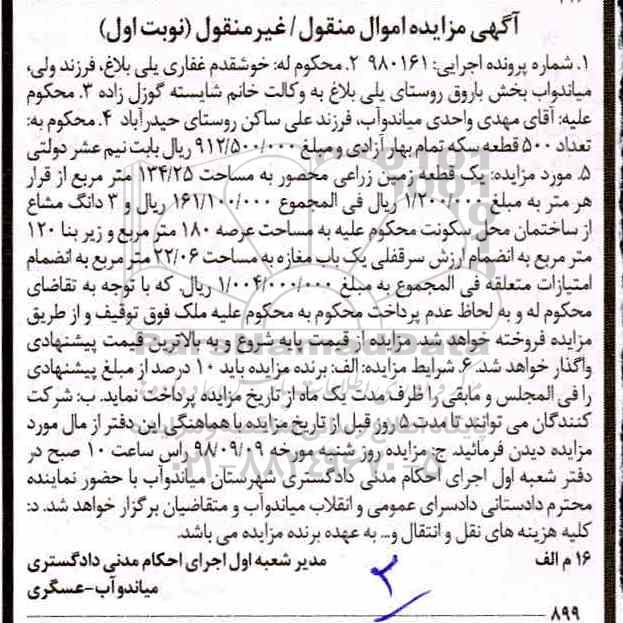 آگهی مزایده اموال منقول/غیرمنقول (نوبت اول)
۱. شماره پرونده اجرایی: ۹۸۰۱۶۱ ۲. محکوم له: خوشقدم غفاری یلی بلاغ، فرزند ولی،
میاندواب بخش باروق روستای یلی بلاغ به وکالت خانم شایسته گوزل زاده ۳. محکوم
علیه: آقای مهدی واحدی میاندوآب، فرزند علی ساکن روستای حیدرآباد ۴. محکوم به:
تعداد ۵۰۰ قطعه سکه تمام بهار آزادی و مبلغ ۹۱۲/۵۰۰/۰۰۰ ریال بابت نیم عشر دولتی
۵. مورد مزایده: یک قطعه زمین زراعی محصور به مساحت ۱۳۴/۲۵ متر مربع از قرار
هر متر به مبلغ ۱/۲۰۰/۰۰۰ ریال فی المجموع ۱۶۱/۱۰۰/۰۰۰ ریال و ۳ دانگ مشاع
از ساختمان محل سکونت محکوم علیه به مساحت عرصه ۱۸۰ متر مربع و زیر بنا ۱۲۰
متر مربع به انضمام ارزش سرقفلی یک باب مغازه به مساحت ۲۲/۰۶ متر مربع به انضمام
امتیازات متعلقه فی المجموع به مبلغ ۱/۰۰۴/۰۰۰/۰۰۰ ریال. که با توجه به تقاضای
محکوم له و به لحاظ عدم پرداخت محکوم به محکوم علیه ملک فوق توقیف و از طریق
مزایده فروخته خواهد شد. مزایده از قیمت پایه شروع و به بالاترین قیمت پیشنهادی
واگذار خواهد شد. ۶. شرایط مزایده: الف: برنده مزایده باید ۱۰ درصد از مبلغ پیشنهادی
را فی المجلس و مابقی را ظرف مدت یک ماه از تاریخ مزایده پرداخت نماید. ب: شرکت
کنندگان می توانند تا مدت ۵ روز قبل از تاریخ مزایده با هماهنگی این دفتر از مال مورد
مزایده دیدن فرمائید. ج: مزایده روز شنبه مورخه ۹۸/۰۹/۰۹ راس ساعت ۱۰ صبح در
دفتر شعبه اول اجرای احکام مدنی دادگستری شهرستان میاندوآب با حضور نماینده
محترم دادستانی دادسرای عمومی و انقلاب میاندوآب و متقاضیان برگزار خواهد شد. د:
کلیه هزینه های نقل و انتقال و... به عهده برنده مزایده می باشد.
۱۶ م الف مدیر شعبه اول اجرای احکام مدنی دادگستری
میاندوآب-عسگری
۲
۸۹۹
ParsNamadData
۰۲۱-۸۸۳۴۹۶۷۰-۵